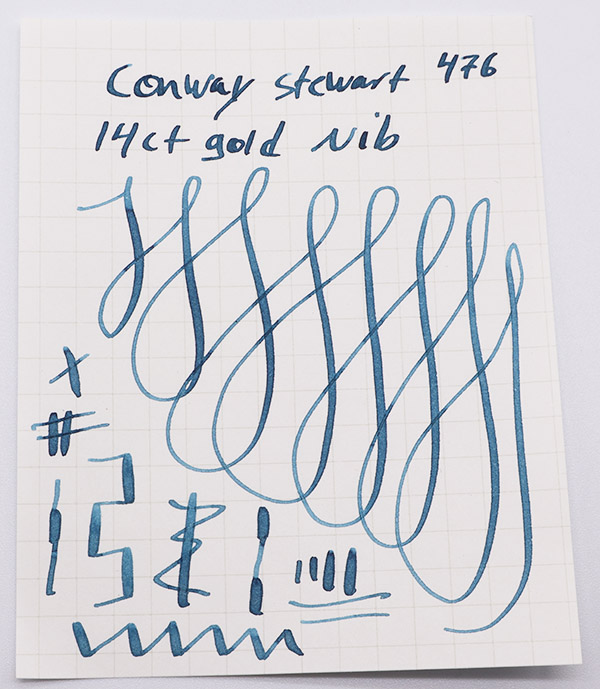 Conway Stewart 476
14ct gold Nib